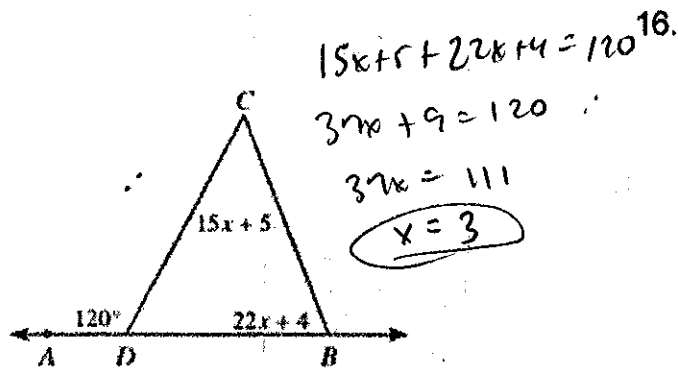 16.
15x+5+22x+4=120
37x+9=120
37x=111
x=3
C
15x + 5
120°
22x + 4
A
D
B